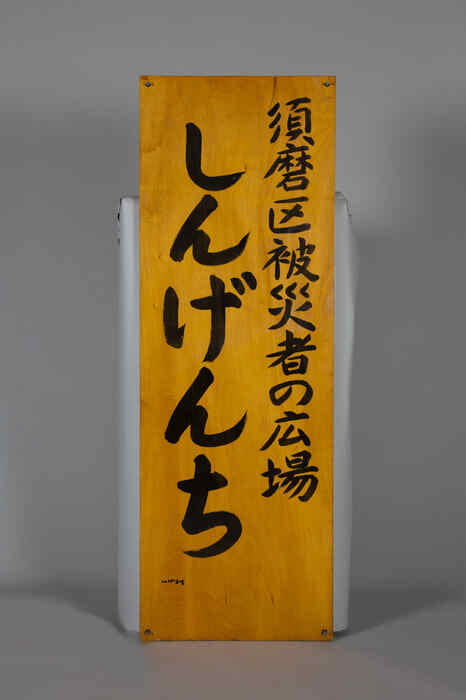 須磨区被災者の広場
しんげんち